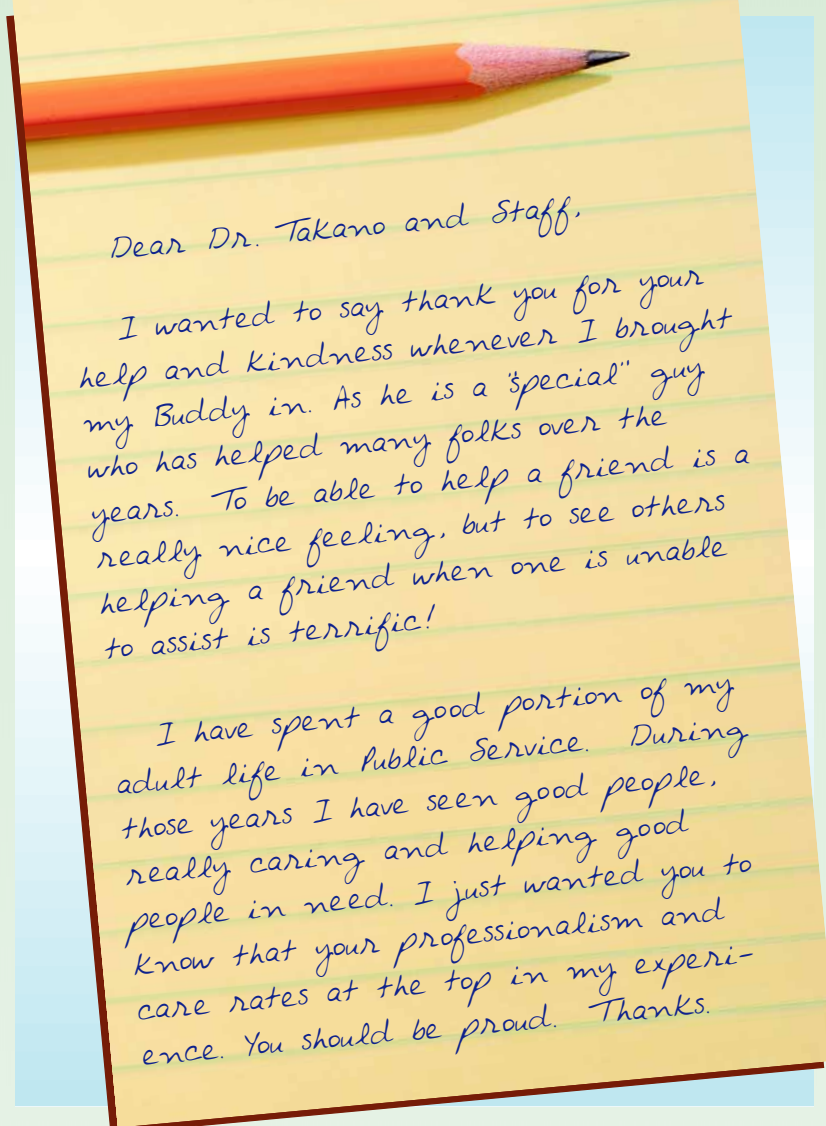 Dear Dr. Takano and Staff,
I wanted to say thank you for your
help and kindness whenever I brought
my Buddy in. As he is a "special" guy
who has helped many folks over the
years. To be able to help a friend is a
really nice feeling, but to see others
helping a friend when one is unable
to assist is terrific!
I have spent a good portion of my
adult life in Public Service. During
those years I have seen good people,
really caring and helping good
people in need. I just wanted you to
know that your professionalism and
care rates at the top in my experi-
ence. You should be proud. Thanks.